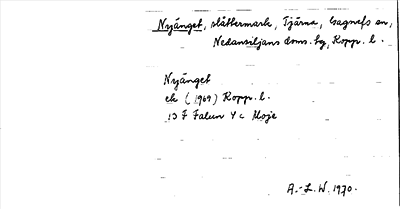 Nyänget, slåttermark, Tjärna, Gagnefs sn,
Nedansiljans doms. hg, Kopp. l.
Nyänget
ek (1969) Kopp. l.
13 F Falun 4 c Moje
A.-L. W. 1970.